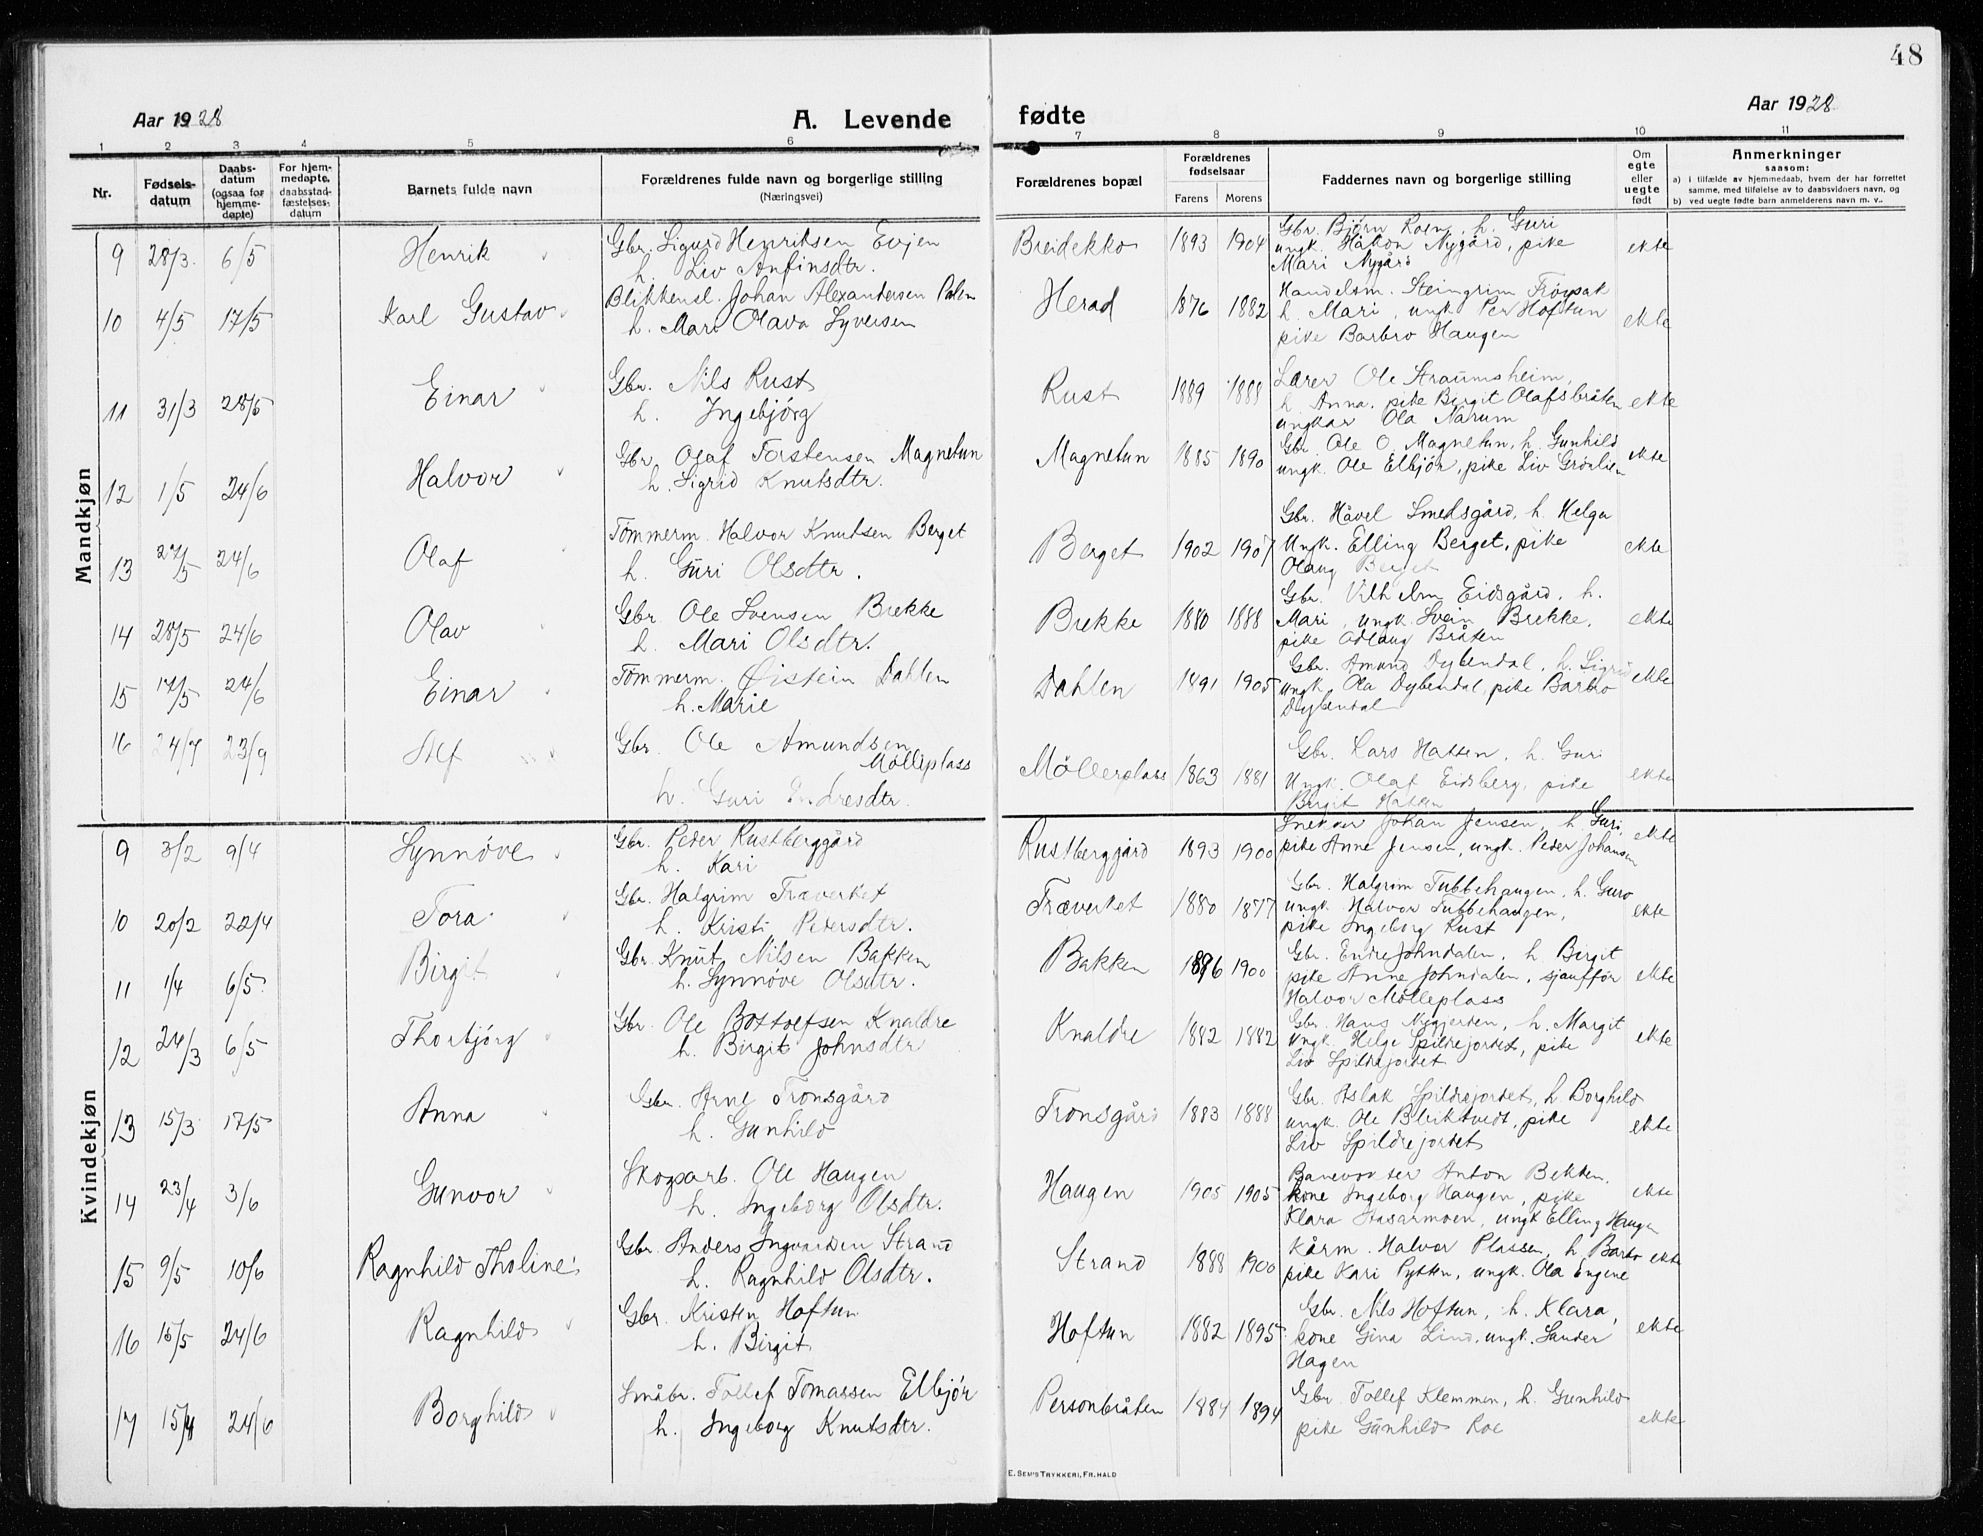 48
Aar 1928 A. Levende fødte Aar 1928
1 2 3 4 5 6 7 8 9 10 11
Nr. Fødsels-datum Daabs-datum (ogsaa for hjemme-døpte) For hjem-medøpte, daabsstad-fæstelses-datum Barnets fulde navn Forældrenes fulde navn og borgerlige stilling (Næringsvei) Forældrenes bopæl Forældrenes fødselsaar Farens Morens Faddernes navn og borgerlige stilling Om egte eller uegte født Anmerkninger saasom:
a) i tilfælde av hjemmedaab, hvem der har forrettet samme, med tilføielse av to daabsvidners navn, og
b) ved uegte fødte barn anmelderens navn m. v..
Mandkjøn
9 28/3 6/5 Henrik Gbr. Sigurd Henriksen Evjen Breidokko 1893 1904 Gbr. Bjørn Roen, h. Guri ekte
h. Liv Anfinsdtr. ungk. Håkon Nygård, pike
Mari Nygård
10 4/5 17/5 Karl Gustav Blikkensl. Johan Alexandersen Palm Herad 1876 1882 Handelsm. Steingrim Trøgsak ekte
h. Mari Olava Syversen h. Mari, ungk. Per Hoftun
pike Barbro Haugen
11 31/3 28/5 Einar Gbr. Nils Rust Rust 1889 1888 Lærer Ole Straumsheim, ekte
h. Ingebjørg h. Anna, pike Birgit Olafsbråten
ungkar Ola Narum
12 1/5 24/6 Halvor Gbr. Olaf Torstensen Magnetun Magnetun 1885 1890 Gbr. Ole O. Magnetun, h. Gunhild ekte
h. Sigrid Knutsdtr. ungk. Ole Elbjør, pike Liv Grøslien
13 27/5 24/6 Olaf Tømmerm. Halvor Knutsen Berget Berget 1902 1907 Gbr. Håvel Smedsgård, h. Helga ekte
h. Guri Olsdtr. Ungk. Elling Berget, pike
Olaug Berget
14 28/5 24/6 Olav Gbr. Ole Svensen Brekke Brekke 1880 1888 Gbr. Vilhelm Eidsgård, h. ekte
h. Mari Olsdtr. Mari, ungk. Svein Brekke,
pike Odlaug Bråten
15 17/5 24/6 Einar Tømmerm. Øistein Dahlen Dahlen 1891 1905 Gbr. Amund Dybendal, h. Sigrid ekte
h. Marie ungk. Ola Dybendal, pike Barbro
Dybendal
16 24/7 23/9 Alf Gbr. Ole Amundsen Mølleplass Møllerplass 1863 1881 Gbr. Lars Hatten, h. Guri ekte
h. Guri Endresdtr. Ungk. Olaf Eidsberg, pike
Birgit Hatten
Kvindekjøn
9 3/2 9/4 Synnøve Gbr. Peder Rustberggård Rustberggård 1893 1900 Snekker Johan Jensen, h. Guri, ekte
h. Kari pike Anne Jensen, ungk. Peder Johansen
10 20/2 22/4 Tora Gbr. Halgrim Træverket Træverket 1880 1877 Gbr. Halgrim Tubbehaugen, h. Guro ekte
h. Kristi Pedersdtr. ungk. Halvor Tubbehaugen,
pike Ingeborg Rust
11 1/4 6/5 Birgit Gbr. Knut Nilsen Bakken Bakken 1896 1900 Gbr. Endre Johndalen, h. Birgit ekte
h. Synnøve Olsdtr. pike Anne Johndalen, sjauffør
Halvor Mølleplass
12 24/3 6/5 Thorbjørg Gbr. Ole Bottolfsen Knaldre Knaldre 1882 1882 Gbr. Hans Nygjerden, h. Margit ekte
h. Birgit Johnsdtr ungk. Helge Spildrejordet, pike
Liv Spildrejordet
13 15/3 17/5 Anna Gbr. Arne Tronsgård Tronsgård 1883 1888 Gbr. Aslak Spildrejordet, h. Borghild ekte
h. Gunhild ungk. Ole Bleiktvedt, pike
Liv Spildrejordet
14 23/4 3/6 Gunvor Skogsarb. Ole Haugen Haugen 1905 1905 Banevokter Anton Bekken, ekte
h. Ingeborg Olsdtr. kone Ingeborg Haugen, pike
Klara Hasarmoen, ungk Elling Haugen
15 9/5 10/6 Ragnhild Tholine Gbr. Anders Ingvardsen Strand Strand 1888 1900 Kårm. Halvor Plassen, h Barbro ekte
h. Ragnhild Olsdtr. pike Kari Pytten, ungk. Ola Engene
16 15/5 24/6 Ragnhild Gbr. Kristen Hoftun Hoftun 1882 1895 Gbr. Nils Hoftun, h. Klara, ekte
h. Birgit kone Gina Lind, ungk. Sander
Hagen
17 15/4 24/6 Borghild Småbr. Tollef Tomassen Elbjør Personbråten 1884 1894 Gbr Tollef Klemmen, h. Gunhild ekte
h. Ingeborg Knutsdtr. pike Gunhild Roe
E. SEM'S TRYKKERI, FR. HALD